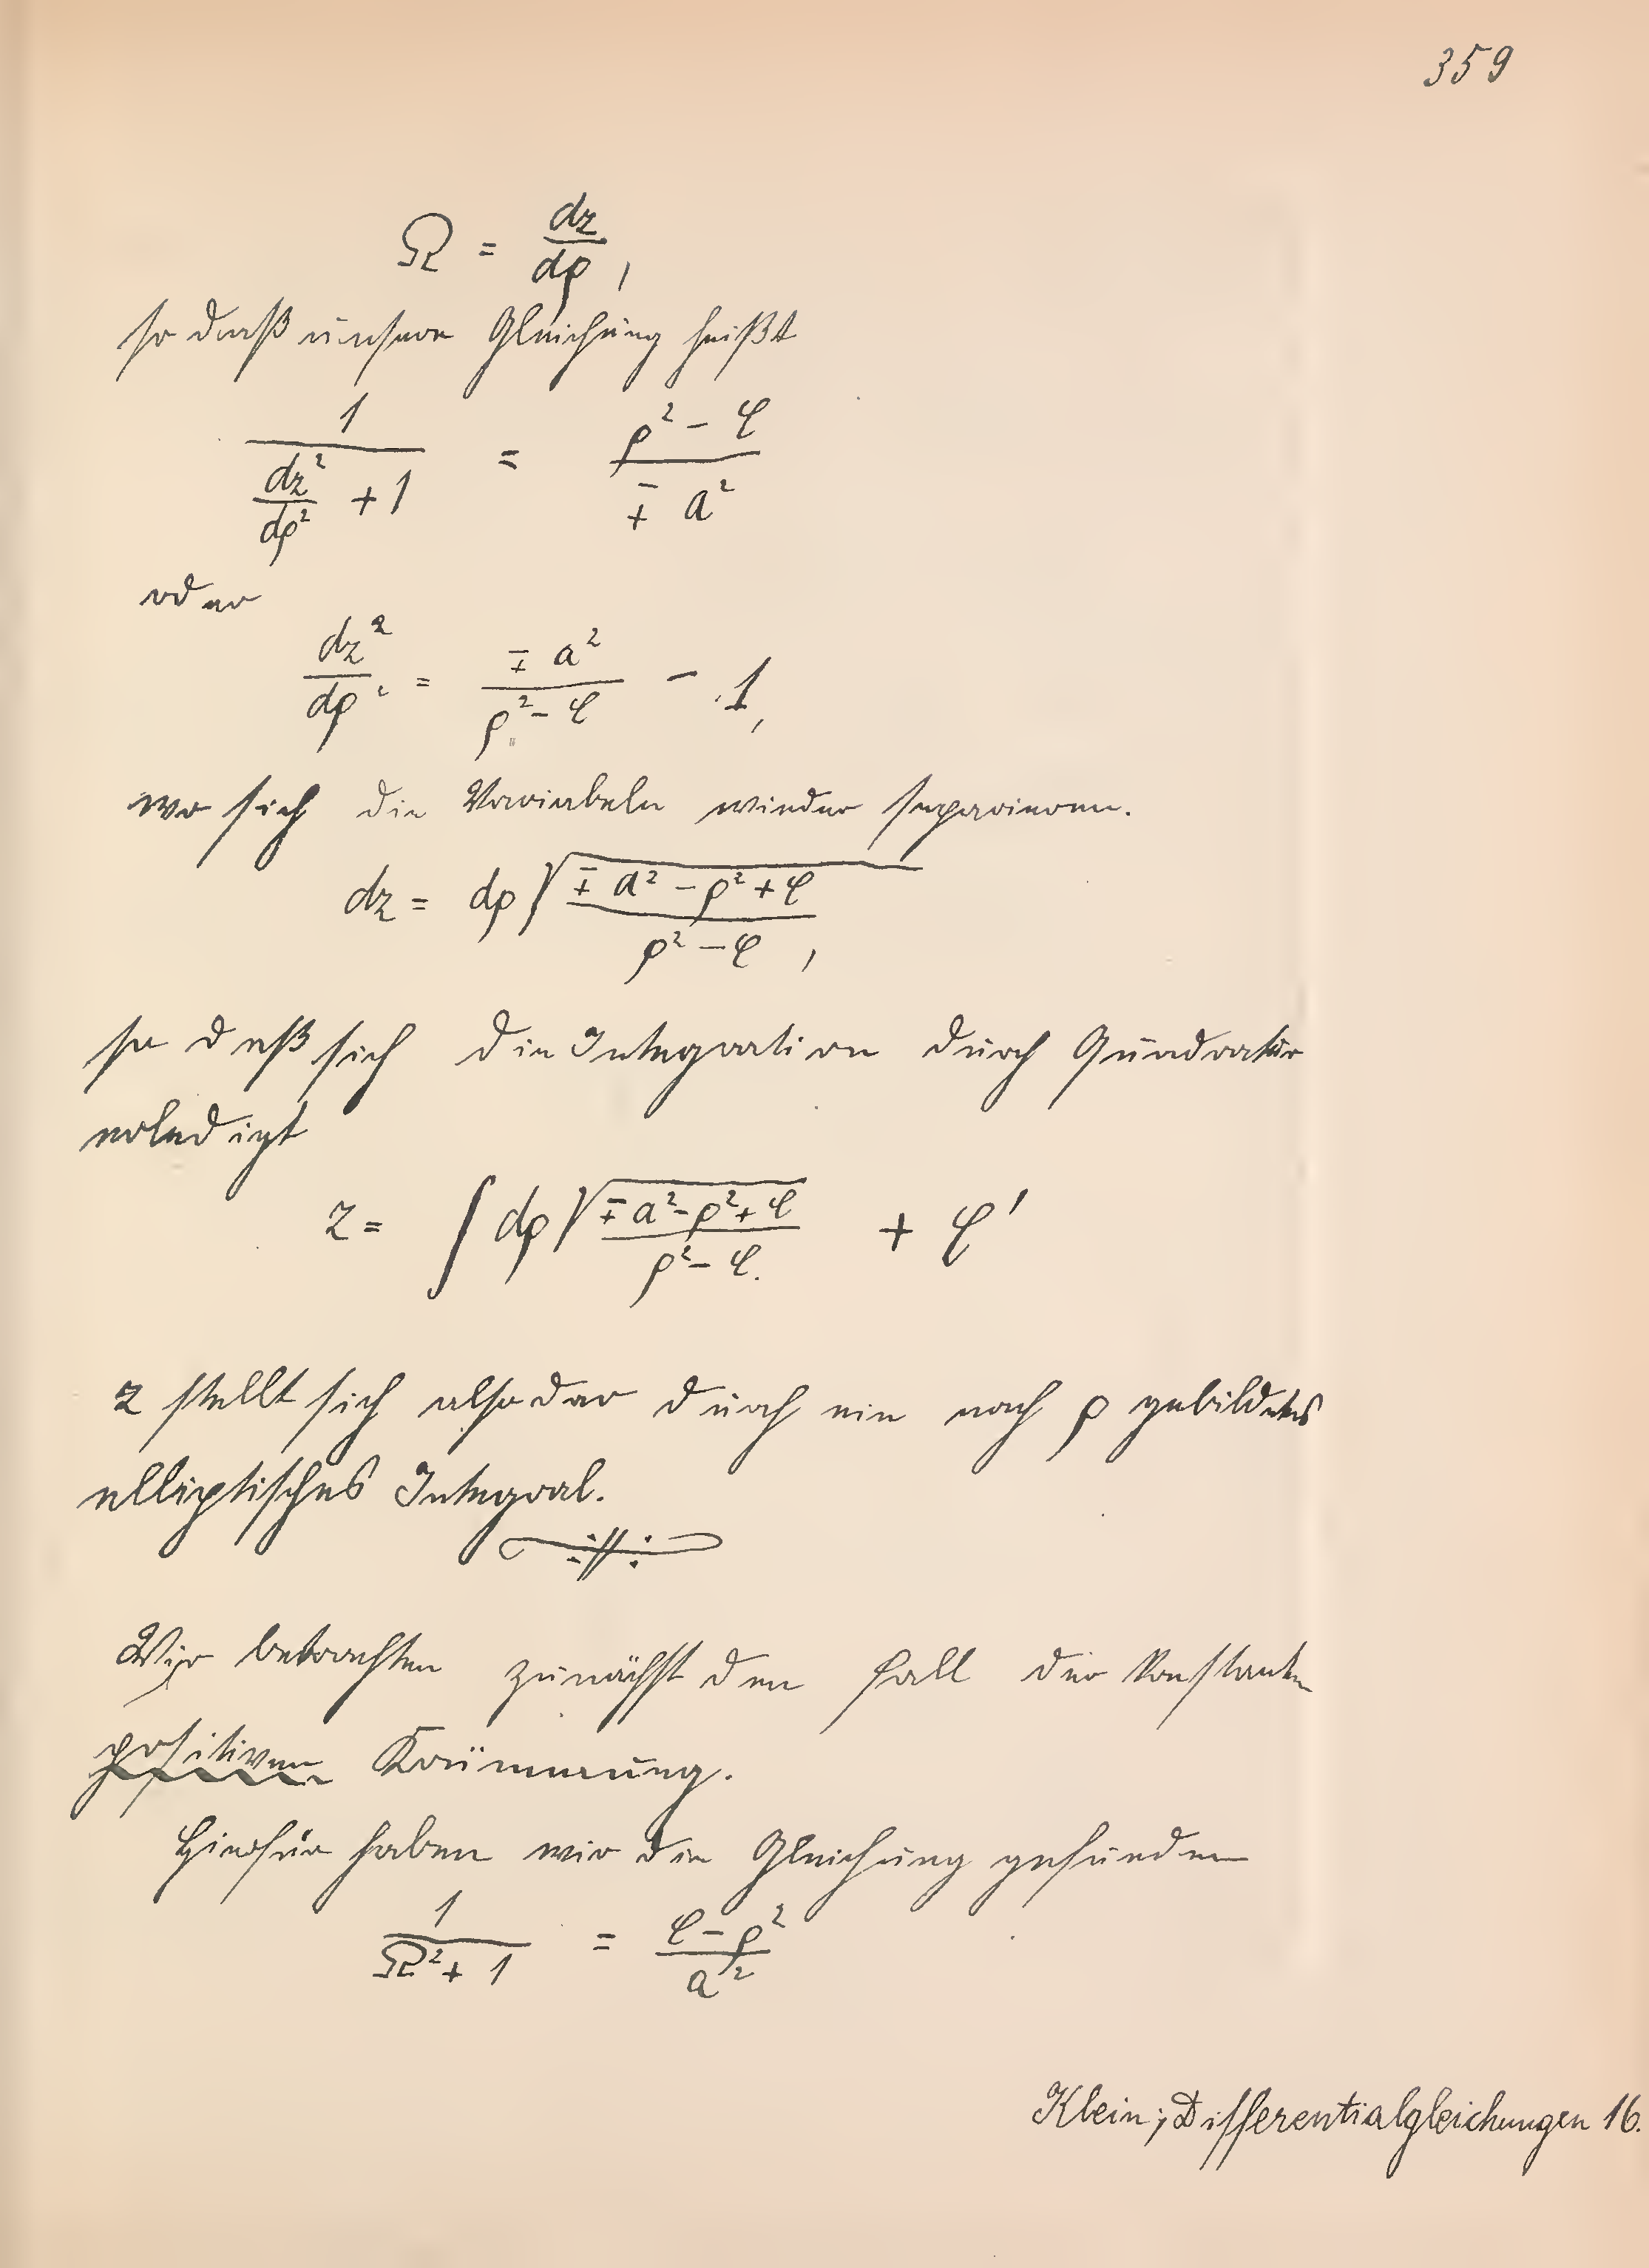 359
Ω = dz/dρ,
so daß unsere Gleichung heißt
1/(dz²/dρ² + 1) = (ρ² − C)/(∓ a²)
oder
dz²/dρ² = ∓ a²/(ρ² − C) − 1,
wo sich die Variabeln wieder separieren.
dz = dρ √((∓ a² − ρ² + C)/(ρ² − C)),
so daß sich die Integration durch Quadratur
erledigt
z = ∫ dρ √((∓ a² − ρ² + C)/(ρ² − C)) + C'
z stellt sich also dar durch ein nach ρ gebildetes
elliptisches Integral.
Wir betrachten zunächst den Fall der konstanten
positiven Krümmung.
Hierfür haben wir die Gleichung gefunden
1/(Ω² + 1) = (C − ρ²)/a²
Klein; Differentialgleichungen 16.